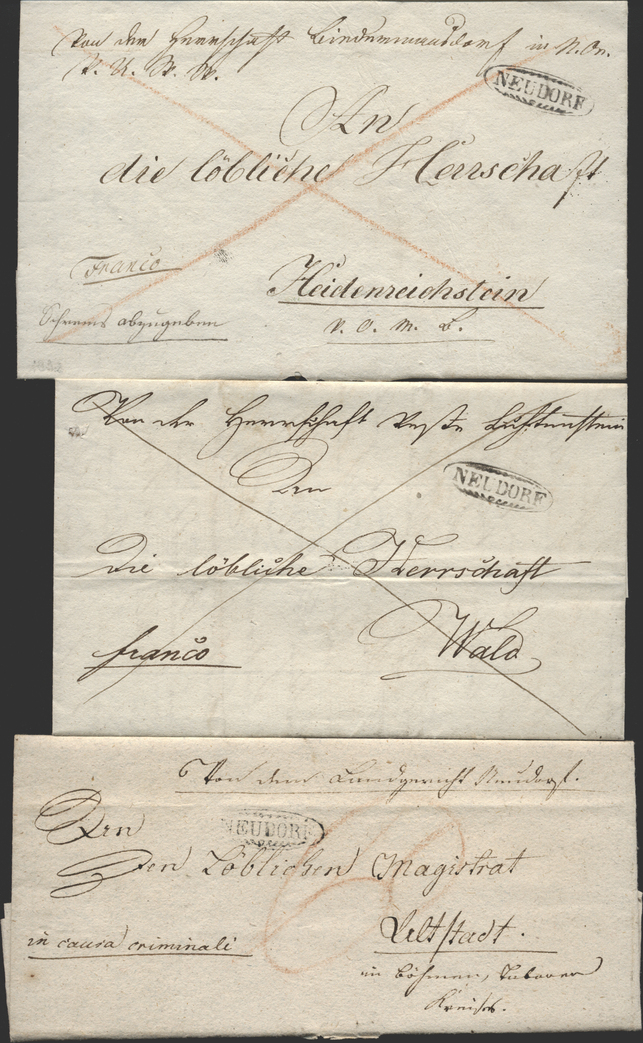 Von der Herrschaft Biedermannsdorf in N. Oe.
V. U. W. W.
NEUDORF
An
die löbliche Herrschaft
Franco
Heidenreichstein
Schrems abzugeben
V. O. M. B.
Von der Herrschaft Veste Lichtenstein
NEUDORF
An
Die löbliche Herrschaft
franco
Wald
Von dem Landgericht Neudorf.
An
NEUDORF
den Löblichen Magistrat
in causa criminali
Altstadt.
in Böhmen, Taborer
Kreises.